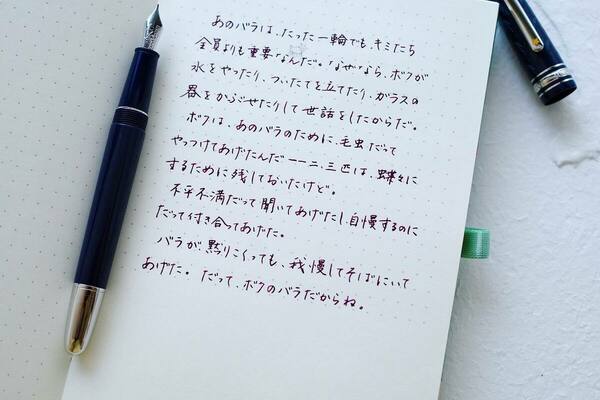 あのバラは、たった一輪でも、キミたち
全員よりも重要なんだ。なぜなら、ボクが
水をやったり、ついたてを立てたり、ガラスの
器をかぶせたりして世話をしたからだ。
ボクは、あのバラのために、毛虫だって
やっつけてあげたんだ——二、三匹は、蝶々に
するために残しておいたけど。
不平不満だって聞いてあげたし、自慢するのに
だって付き合ってあげた。
バラが、黙りこくっても、我慢してそばにいて
あげた。だって、ボクのバラだからね。